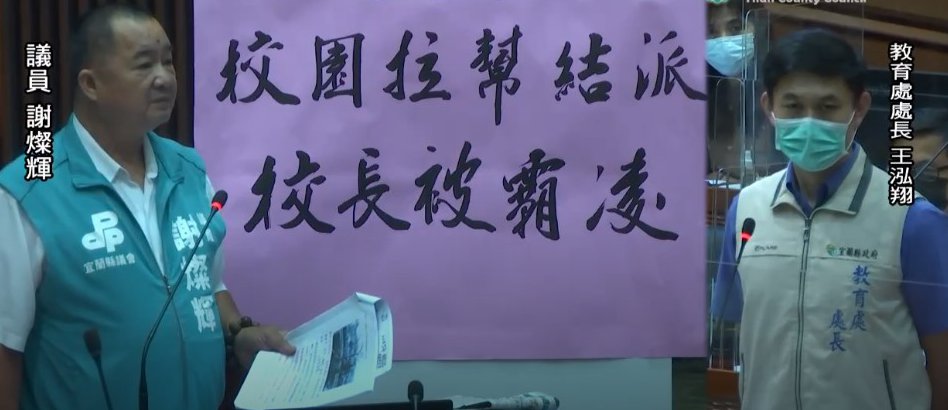 Yilan County Council
議員 謝燦輝
校園拉幫結派
校長被霸凌
教育處處長 王泓翔
宜蘭縣議會
謝燦輝
宜蘭縣政府
教育處
處長